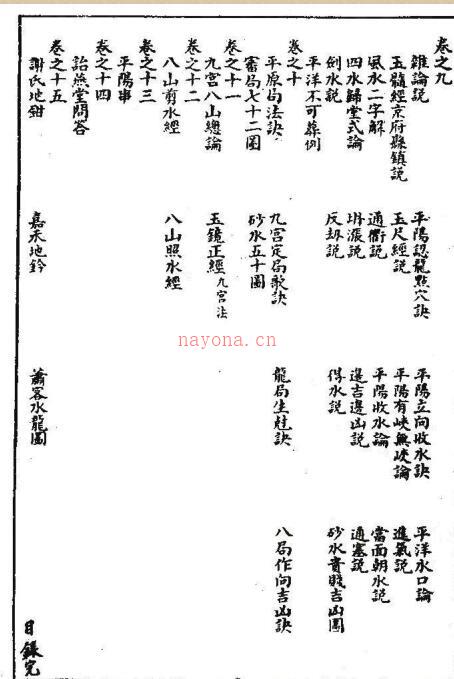 卷之九
雜論說 平陽認龍點穴訣 平陽立向收水訣 平洋水口論
玉髓經京府縣鎮說 玉尺經說 平陽有峽無峽論 進氣說
風水二字解 通衢說 平陽收水論 當面朝水說
四水歸堂式論 坍漲說 邊吉邊凶說 通塞說
劍水說 反刼說 得水說 砂水貴賤吉凶圖
平洋不可葬例
卷之十
平原局法訣 九宮定局歌訣 龍局生尅訣 八局作向吉凶訣
審局七十二圖 砂水五十圖
卷之十一
九宮八山總論 玉鏡正經九宮法
卷之十二
八山剪水經 八山照水經
卷之十三
平陽串
卷之十四
詒燕堂問答
卷之十五
謝氏地鉗 嘉禾地鈐 蕭客水龍圖
目錄完
nayona.cn